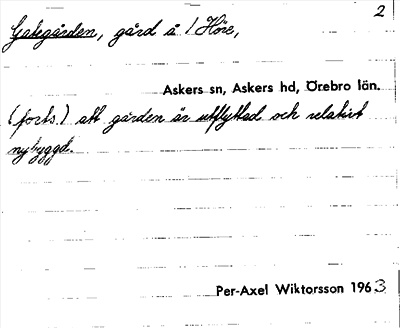 2
Gategården, gård å 1 Höre,
Askers sn, Askers hd, Örebro län.
(forts.) att gården är utflyttad och relativt
nybyggd.
Per-Axel Wiktorsson 1963